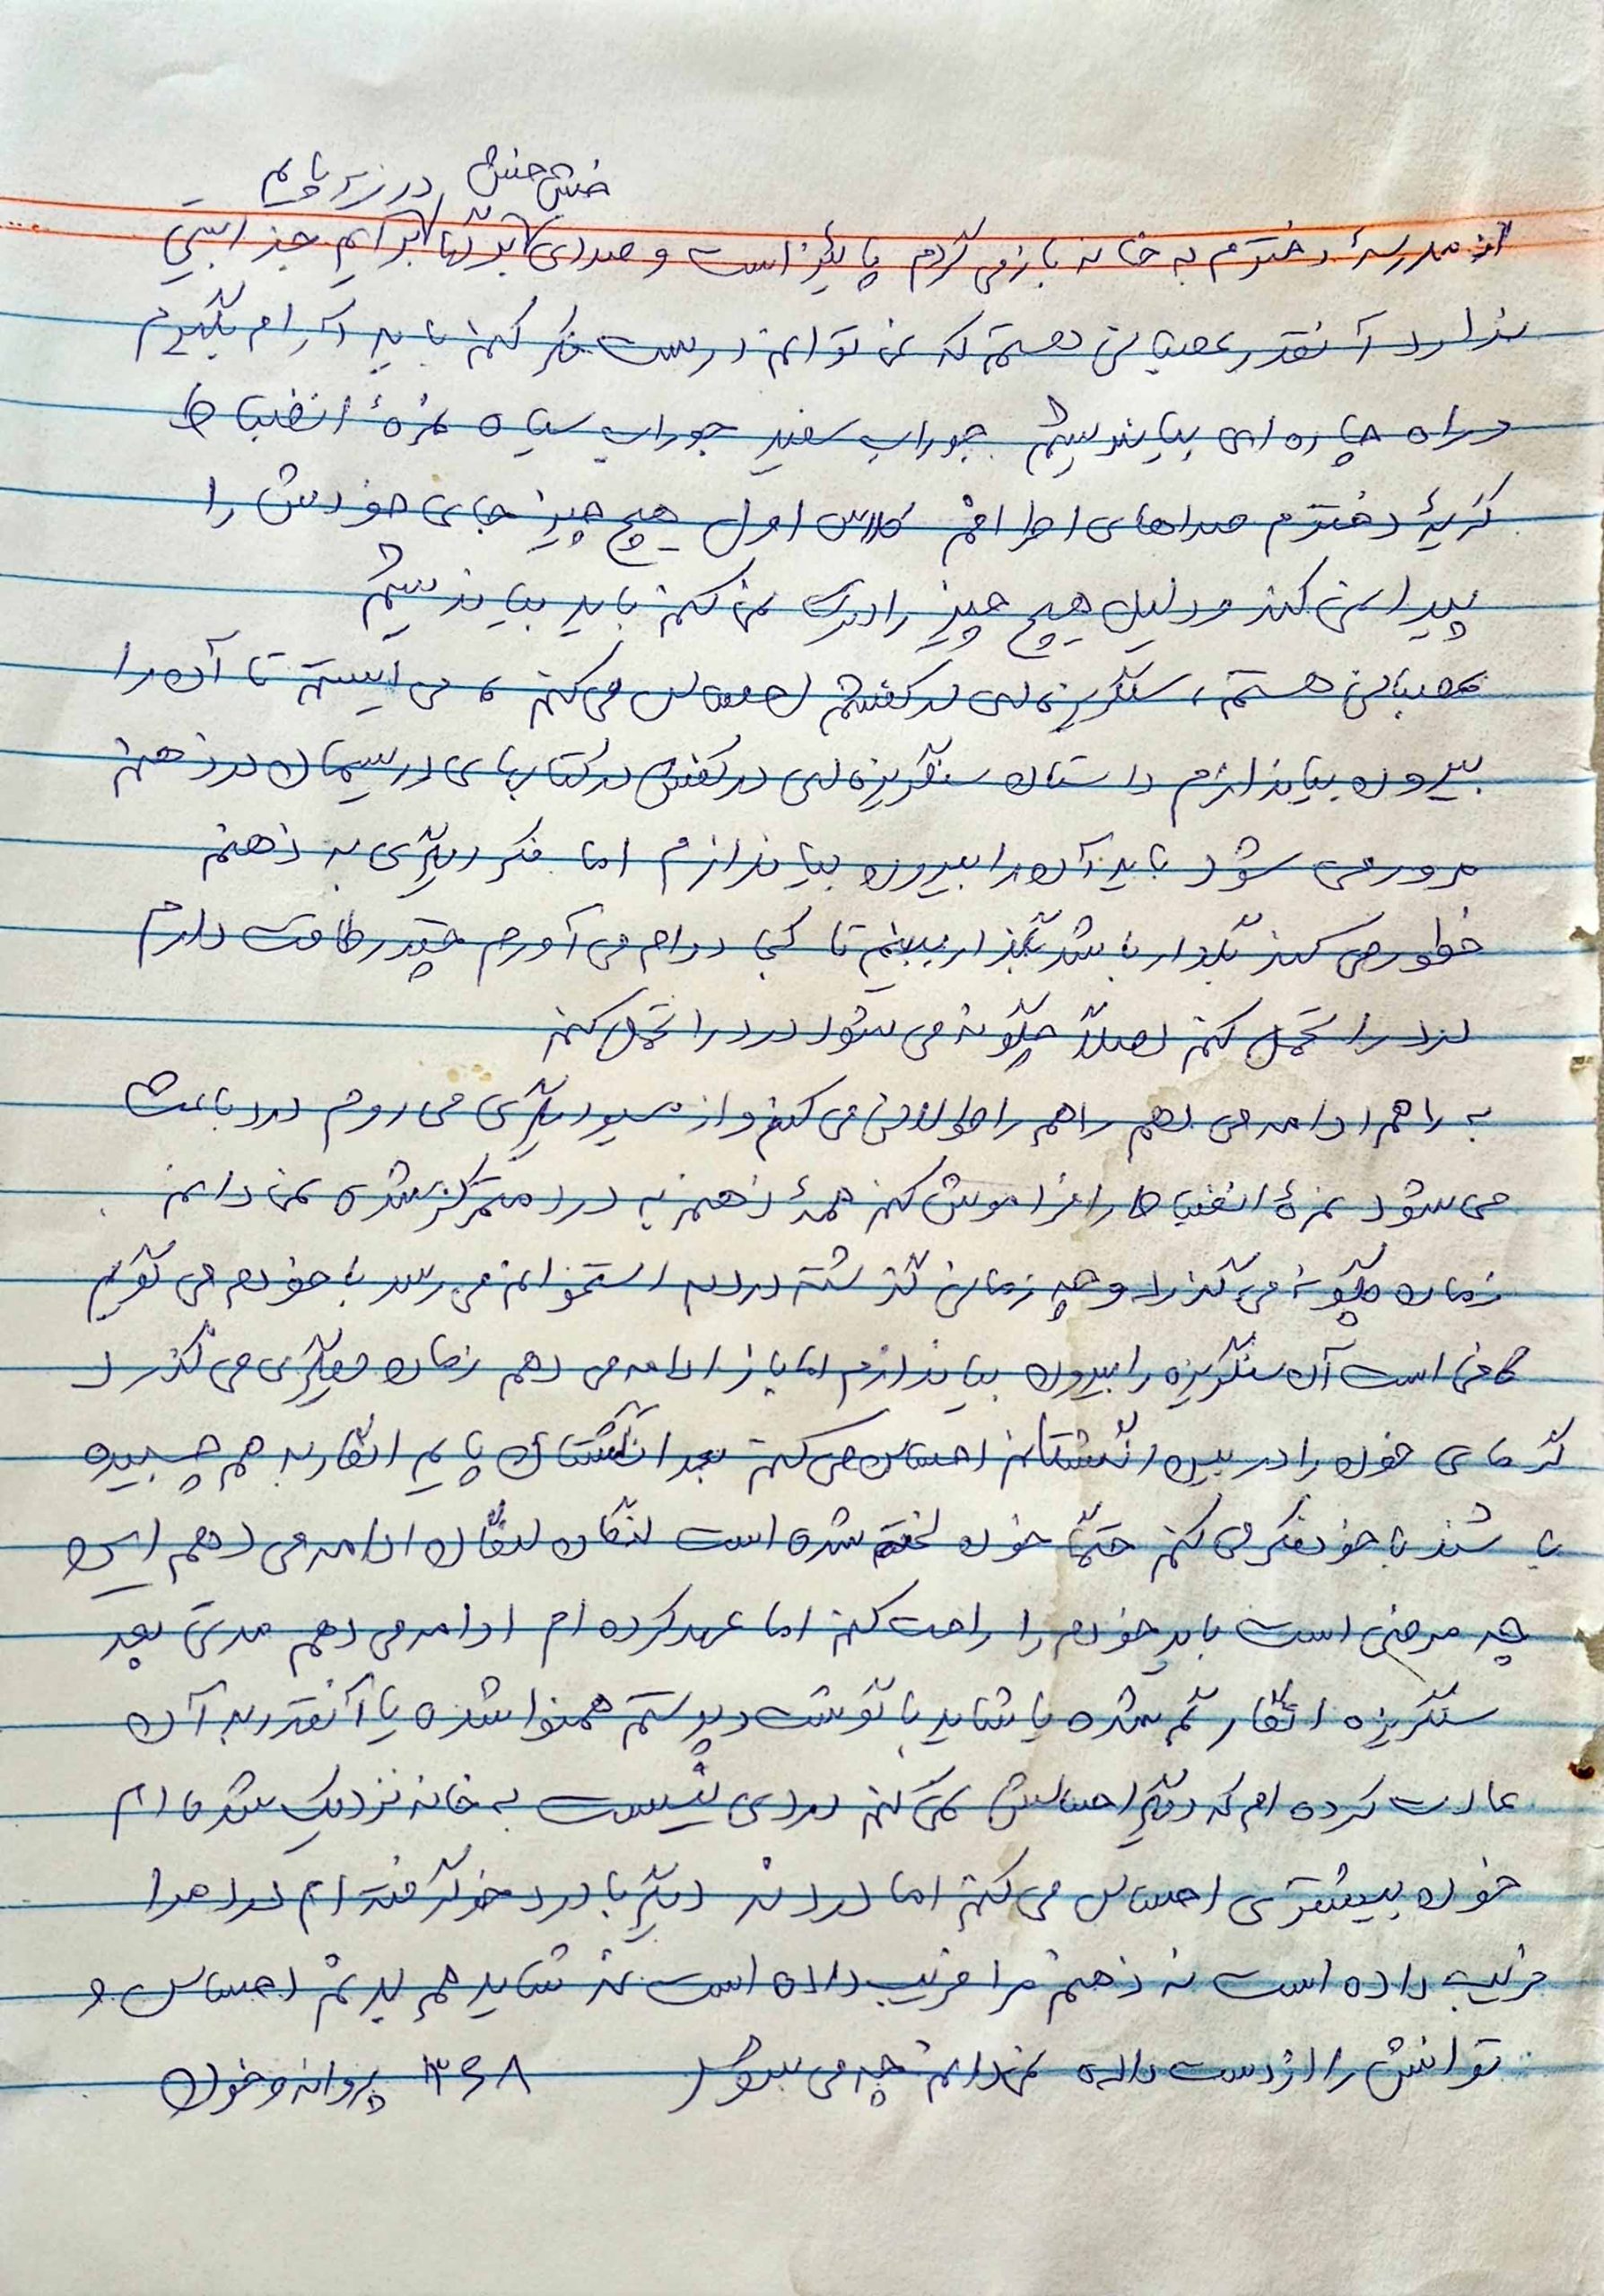 خش خش در زیر پایم
از مدرسهٔ دخترم به خانه باز می گردم پائیز است و صدای برگها برایم جذابیتی
ندارد آنقدر عصبانی هستم که نمی توانم درست فکر کنم باید آرام بگیرم
در راه چاره ای بیاندیشم جوراب سفید جوراب سیاه نمرهٔ انضباط
گریهٔ دخترم صداهای اطرافم کلاس اول هیچ چیز جای خودش را
پیدا نمی کند و دلیل هیچ چیز را درک نمی کنم باید بیاندیشم
عصبانی هستم، سنگریزه ای در کفشم احساس می کنم، می ایستم تا آن را
بیرون بیاندازم داستان سنگریزه ای در کفش در کتابهای درسیمان در ذهنم
مرور می شود باید آن را بیرون بیاندازم اما فکر دیگری به ذهنم
خطور می کند بگذار باشد بگذار ببینم تا کجا دوام می آورم چقدر طاقت دارم
درد را تحمل کنم اصلاً چگونه می شود درد را تحمل کنم
به راهم ادامه می دهم راهم را طولانی می کنم و از مسیر دیگری می روم درد باعث
می شود نمرهٔ انضباط را فراموش کنم همهٔ ذهنم به درد متمرکز شده نمی دانم
زمان چگونه می گذرد و چه زمانی گذشته درد به استخوانم می رسد با خودم می گویم
کافی است آن سنگریزه را بیرون بیاندازم اما باز ادامه می دهم زمان دیگری می گذرد
گرمای خون را در بین انگشتانم احساس می کنم بعد انگشتان پایم انگار به هم چسبیده
باشند با خود فکر می کنم حتماً خون لخته شده است لنگان لنگان ادامه می دهم این
چه مرضی است باید خودم را راحت کنم اما عهد کرده ام ادامه می دهم مدتی بعد
سنگریزه انگار گم شده یا شاید با گوشت و پوستم همنوا شده یا آنقدر به آن
عادت کرده ام که دیگر احساسش نمی کنم دردی نیست به خانه نزدیک شده ام
خون بیشتری احساس می کنم اما درد نه دیگر با درد خو گرفته ام درد مرا
فریب داده است نه ذهنم مرا فریب داده است نه شاید هم بدنم احساس و
توانش را از دست داده نمی دانم چه می شود ۱۳۶۸ پروانه و خون